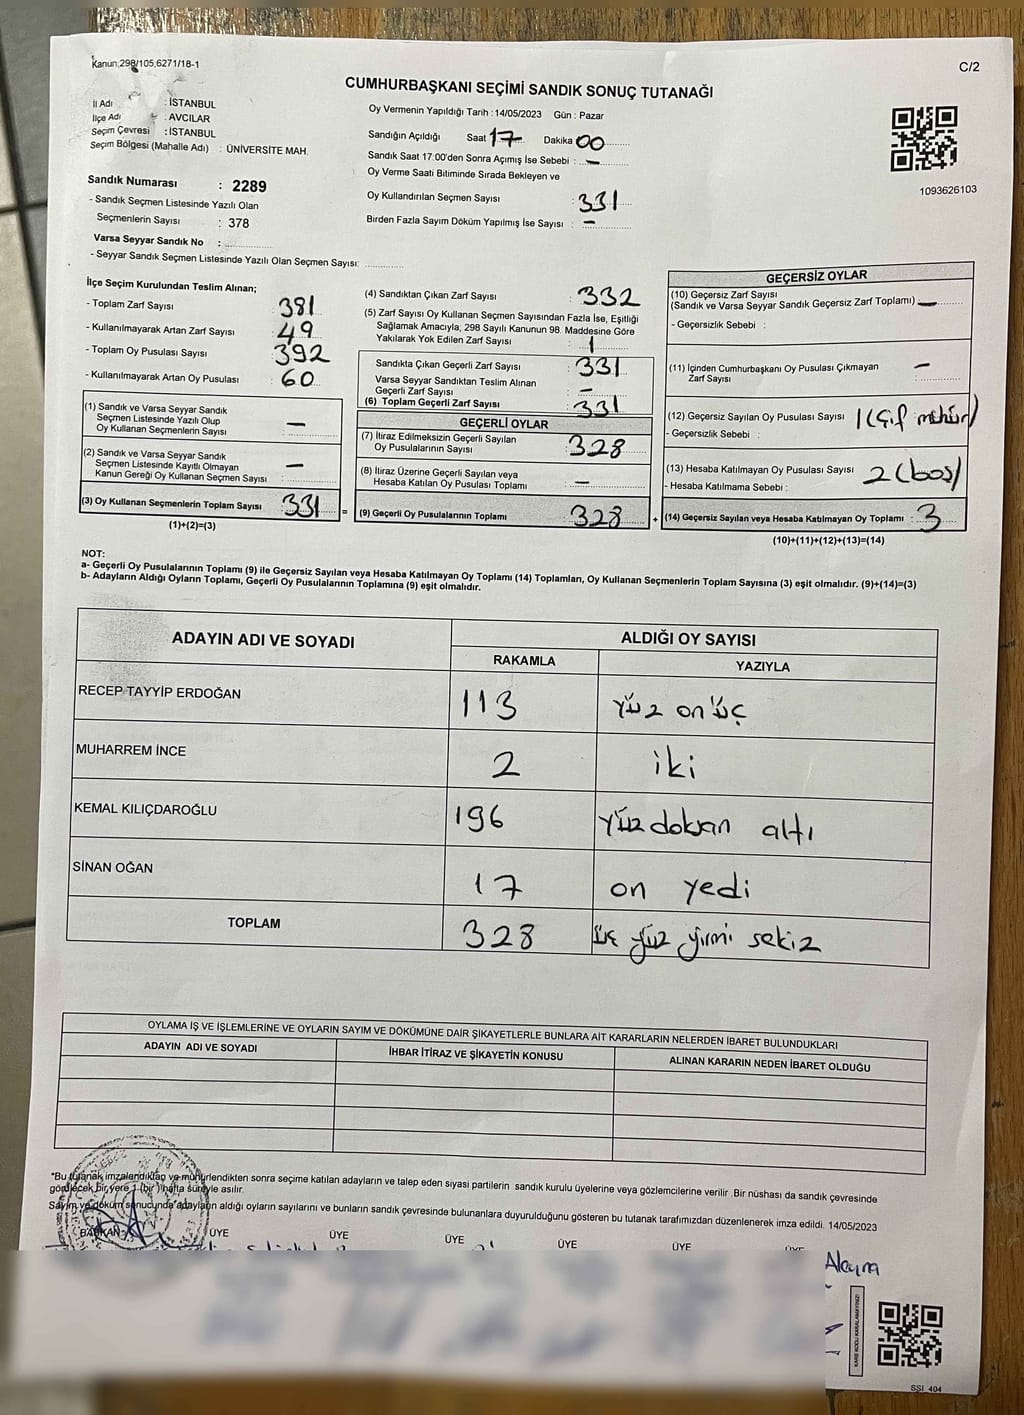 Kanun,298/105,6271/18-1
C/2
CUMHURBAŞKANI SEÇİMİ SANDIK SONUÇ TUTANAĞI
İl Adı : İSTANBUL
İlçe Adı : AVCILAR
Seçim Çevresi : İSTANBUL
Seçim Bölgesi (Mahalle Adı) : ÜNİVERSİTE MAH.
Sandık Numarası : 2289
- Sandık Seçmen Listesinde Yazılı Olan
Seçmenlerin Sayısı : 378
Varsa Seyyar Sandık No :
- Seyyar Sandık Seçmen Listesinde Yazılı Olan Seçmen Sayısı:
Oy Vermenin Yapıldığı Tarih : 14/05/2023 Gün : Pazar
Sandığın Açıldığı Saat 17 Dakika 00
Sandık Saat 17:00'den Sonra Açımış İse Sebebi : —
Oy Verme Saati Bitiminde Sırada Bekleyen ve
Oy Kullandırılan Seçmen Sayısı : 331
Birden Fazla Sayım Döküm Yapılmış İse Sayısı : —
1093626103
İlçe Seçim Kurulundan Teslim Alınan;
- Toplam Zarf Sayısı : 381
- Kullanılmayarak Artan Zarf Sayısı : 49
- Toplam Oy Pusulası Sayısı : 392
- Kullanılmayarak Artan Oy Pusulası : 60
(1) Sandık ve Varsa Seyyar Sandık
Seçmen Listesinde Yazılı Olup
Oy Kullanan Seçmenlerin Sayısı : —
(2) Sandık ve Varsa Seyyar Sandık
Seçmen Listesinde Kayıtlı Olmayan
Kanun Gereği Oy Kullanan Seçmen Sayısı : —
(3) Oy Kullanan Seçmenlerin Toplam Sayısı : 331 =
(1)+(2)=(3)
(4) Sandıktan Çıkan Zarf Sayısı : 332
(5) Zarf Sayısı Oy Kullanan Seçmen Sayısından Fazla İse, Eşitliği
Sağlamak Amacıyla, 298 Sayılı Kanunun 98. Maddesine Göre
Yakılarak Yok Edilen Zarf Sayısı : 1
Sandıkta Çıkan Geçerli Zarf Sayısı : 331
Varsa Seyyar Sandıktan Teslim Alınan
Geçerli Zarf Sayısı : —
(6) Toplam Geçerli Zarf Sayısı : 331
GEÇERLİ OYLAR
(7) İtiraz Edilmeksizin Geçerli Sayılan
Oy Pusulalarının Sayısı : 328
(8) İtiraz Üzerine Geçerli Sayılan veya
Hesaba Katılan Oy Pusulası Toplamı : —
(9) Geçerli Oy Pusulalarının Toplamı : 328 +
GEÇERSİZ OYLAR
(10) Geçersiz Zarf Sayısı
(Sandık ve Varsa Seyyar Sandık Geçersiz Zarf Toplamı) : —
- Geçersizlik Sebebi :
(11) İçinden Cumhurbaşkanı Oy Pusulası Çıkmayan —
Zarf Sayısı :
(12) Geçersiz Sayılan Oy Pusulası Sayısı 1 (Çif mühür)
- Geçersizlik Sebebi :
(13) Hesaba Katılmayan Oy Pusulası Sayısı 2 (boş)
- Hesaba Katılmama Sebebi :
(14) Geçersiz Sayılan veya Hesaba Katılmayan Oy Toplamı : 3
(10)+(11)+(12)+(13)=(14)
NOT:
a- Geçerli Oy Pusulalarının Toplamı (9) ile Geçersiz Sayılan veya Hesaba Katılmayan Oy Toplamı (14) Toplamları, Oy Kullanan Seçmenlerin Toplam Sayısına (3) eşit olmalıdır. (9)+(14)=(3)
b- Adayların Aldığı Oyların Toplamı, Geçerli Oy Pusulalarının Toplamına (9) eşit olmalıdır.
ADAYIN ADI VE SOYADI ALDIĞI OY SAYISI
RAKAMLA YAZIYLA
RECEP TAYYİP ERDOĞAN 113 Yüz on üç
MUHARREM İNCE 2 iki
KEMAL KILIÇDAROĞLU 196 Yüz doksan altı
SİNAN OĞAN 17 on yedi
TOPLAM 328 üç yüz yirmi sekiz
OYLAMA İŞ VE İŞLEMLERİNE VE OYLARIN SAYIM VE DÖKÜMÜNE DAİR ŞİKAYETLERLE BUNLARA AİT KARARLARIN NELERDEN İBARET BULUNDUKLARI
ADAYIN ADI VE SOYADI İHBAR İTİRAZ VE ŞİKAYETİN KONUSU ALINAN KARARIN NEDEN İBARET OLDUĞU
*Bu tutanak imzalandıktan ve mühürlendikten sonra seçime katılan adayların ve talep eden siyasi partilerin sandık kurulu üyelerine veya gözlemcilerine verilir. Bir nüshası da sandık çevresinde
görülecek bir yere 1 (bir) hafta süreyle asılır.
Sayım ve döküm sonucunda adayların aldığı oyların sayılarını ve bunların sandık çevresinde bulunanlara duyurulduğunu gösteren bu tutanak tarafımızdan düzenlenerek imza edildi. 14/05/2023
BAŞKAN ÜYE ÜYE ÜYE ÜYE ÜYE ÜYE
Aleyna
KARE KODU KARALAMAYINIZ!
SSI 404